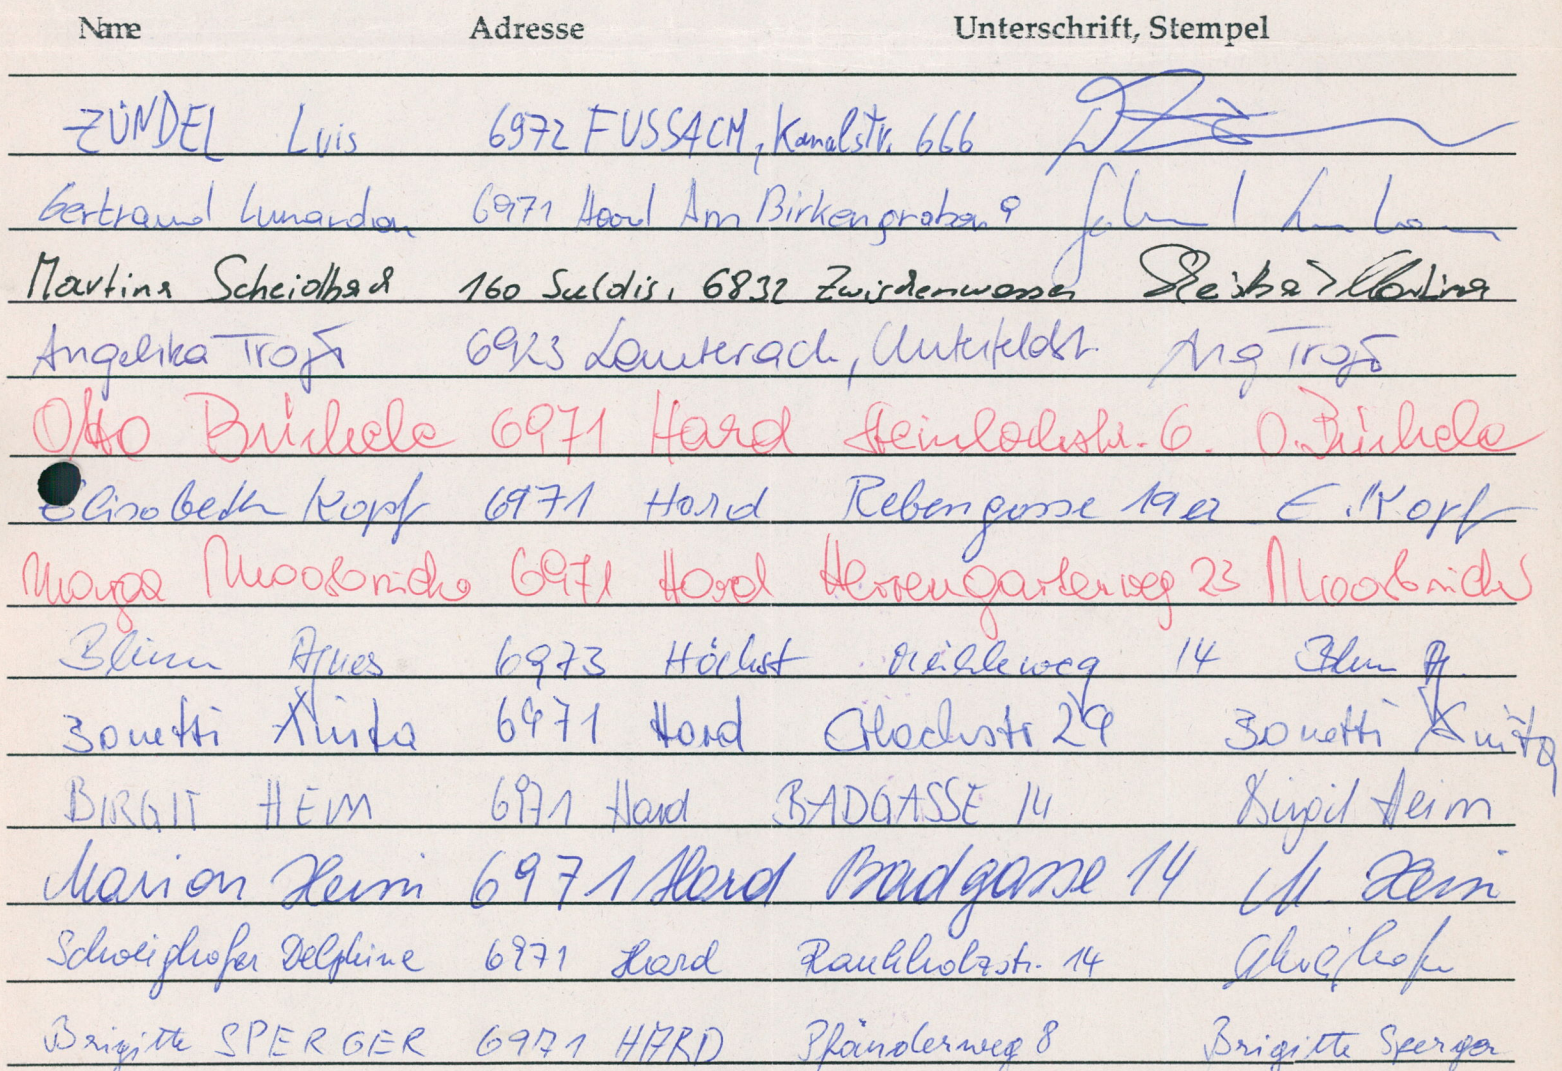 Name Adresse Unterschrift, Stempel
ZÜNDEL Luis 6972 FUSSACH, Kanalstr. 666
Gertraud Lunardon 6971 Hard Am Birkengraben 9
Martina Scheidbach 160 Suldis, 6832 Zwischenwasser Martina
Angelika Troji 6923 Lauterach, Unterfeldstr. Ang Troji
Otto Büchele 6971 Hard Heimlochstr. 6. O. Büchele
Elisabeth Kopf 6971 Hard Rebengasse 19a E. Kopf
Marga Moosbrucker 6971 Hard Herrengartenweg 23 Moosbrucker
Blum Agnes 6973 Höchst Mühleweg 14 Blum A.
Bonetti Anita 6971 Hard 29 Bonetti Anita
BIRGIT HEIM 6971 Hard BADGASSE 14 Birgit Heim
Marion Heim 6971 Hard Badgasse 14 M. Heim
Schweighofer Delphine 6971 Hard Rauhholzstr. 14 Schweighofer
Brigitte SPERGER 6971 HARD Pfänderweg 8 Brigitte Sperger